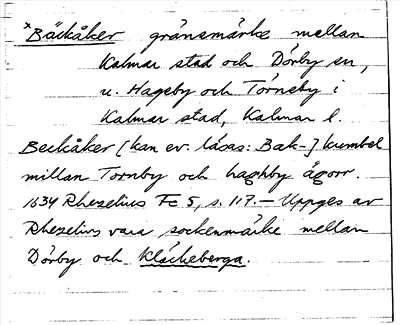 *Bäckåker gränsmärke mellan
Kalmar stad och Dörby sn,
u. Hageby och Törneby i
Kalmar stad, Kalmar l.
Beckåker [kan ev. läsas: Bak-] kumbel
millan Tornby och haghby ägorr.
1634 Rhezelius Fc 5, s. 117. — Uppges av
Rhezelius vara sockenmärke mellan
Dörby och Kläckeberga.